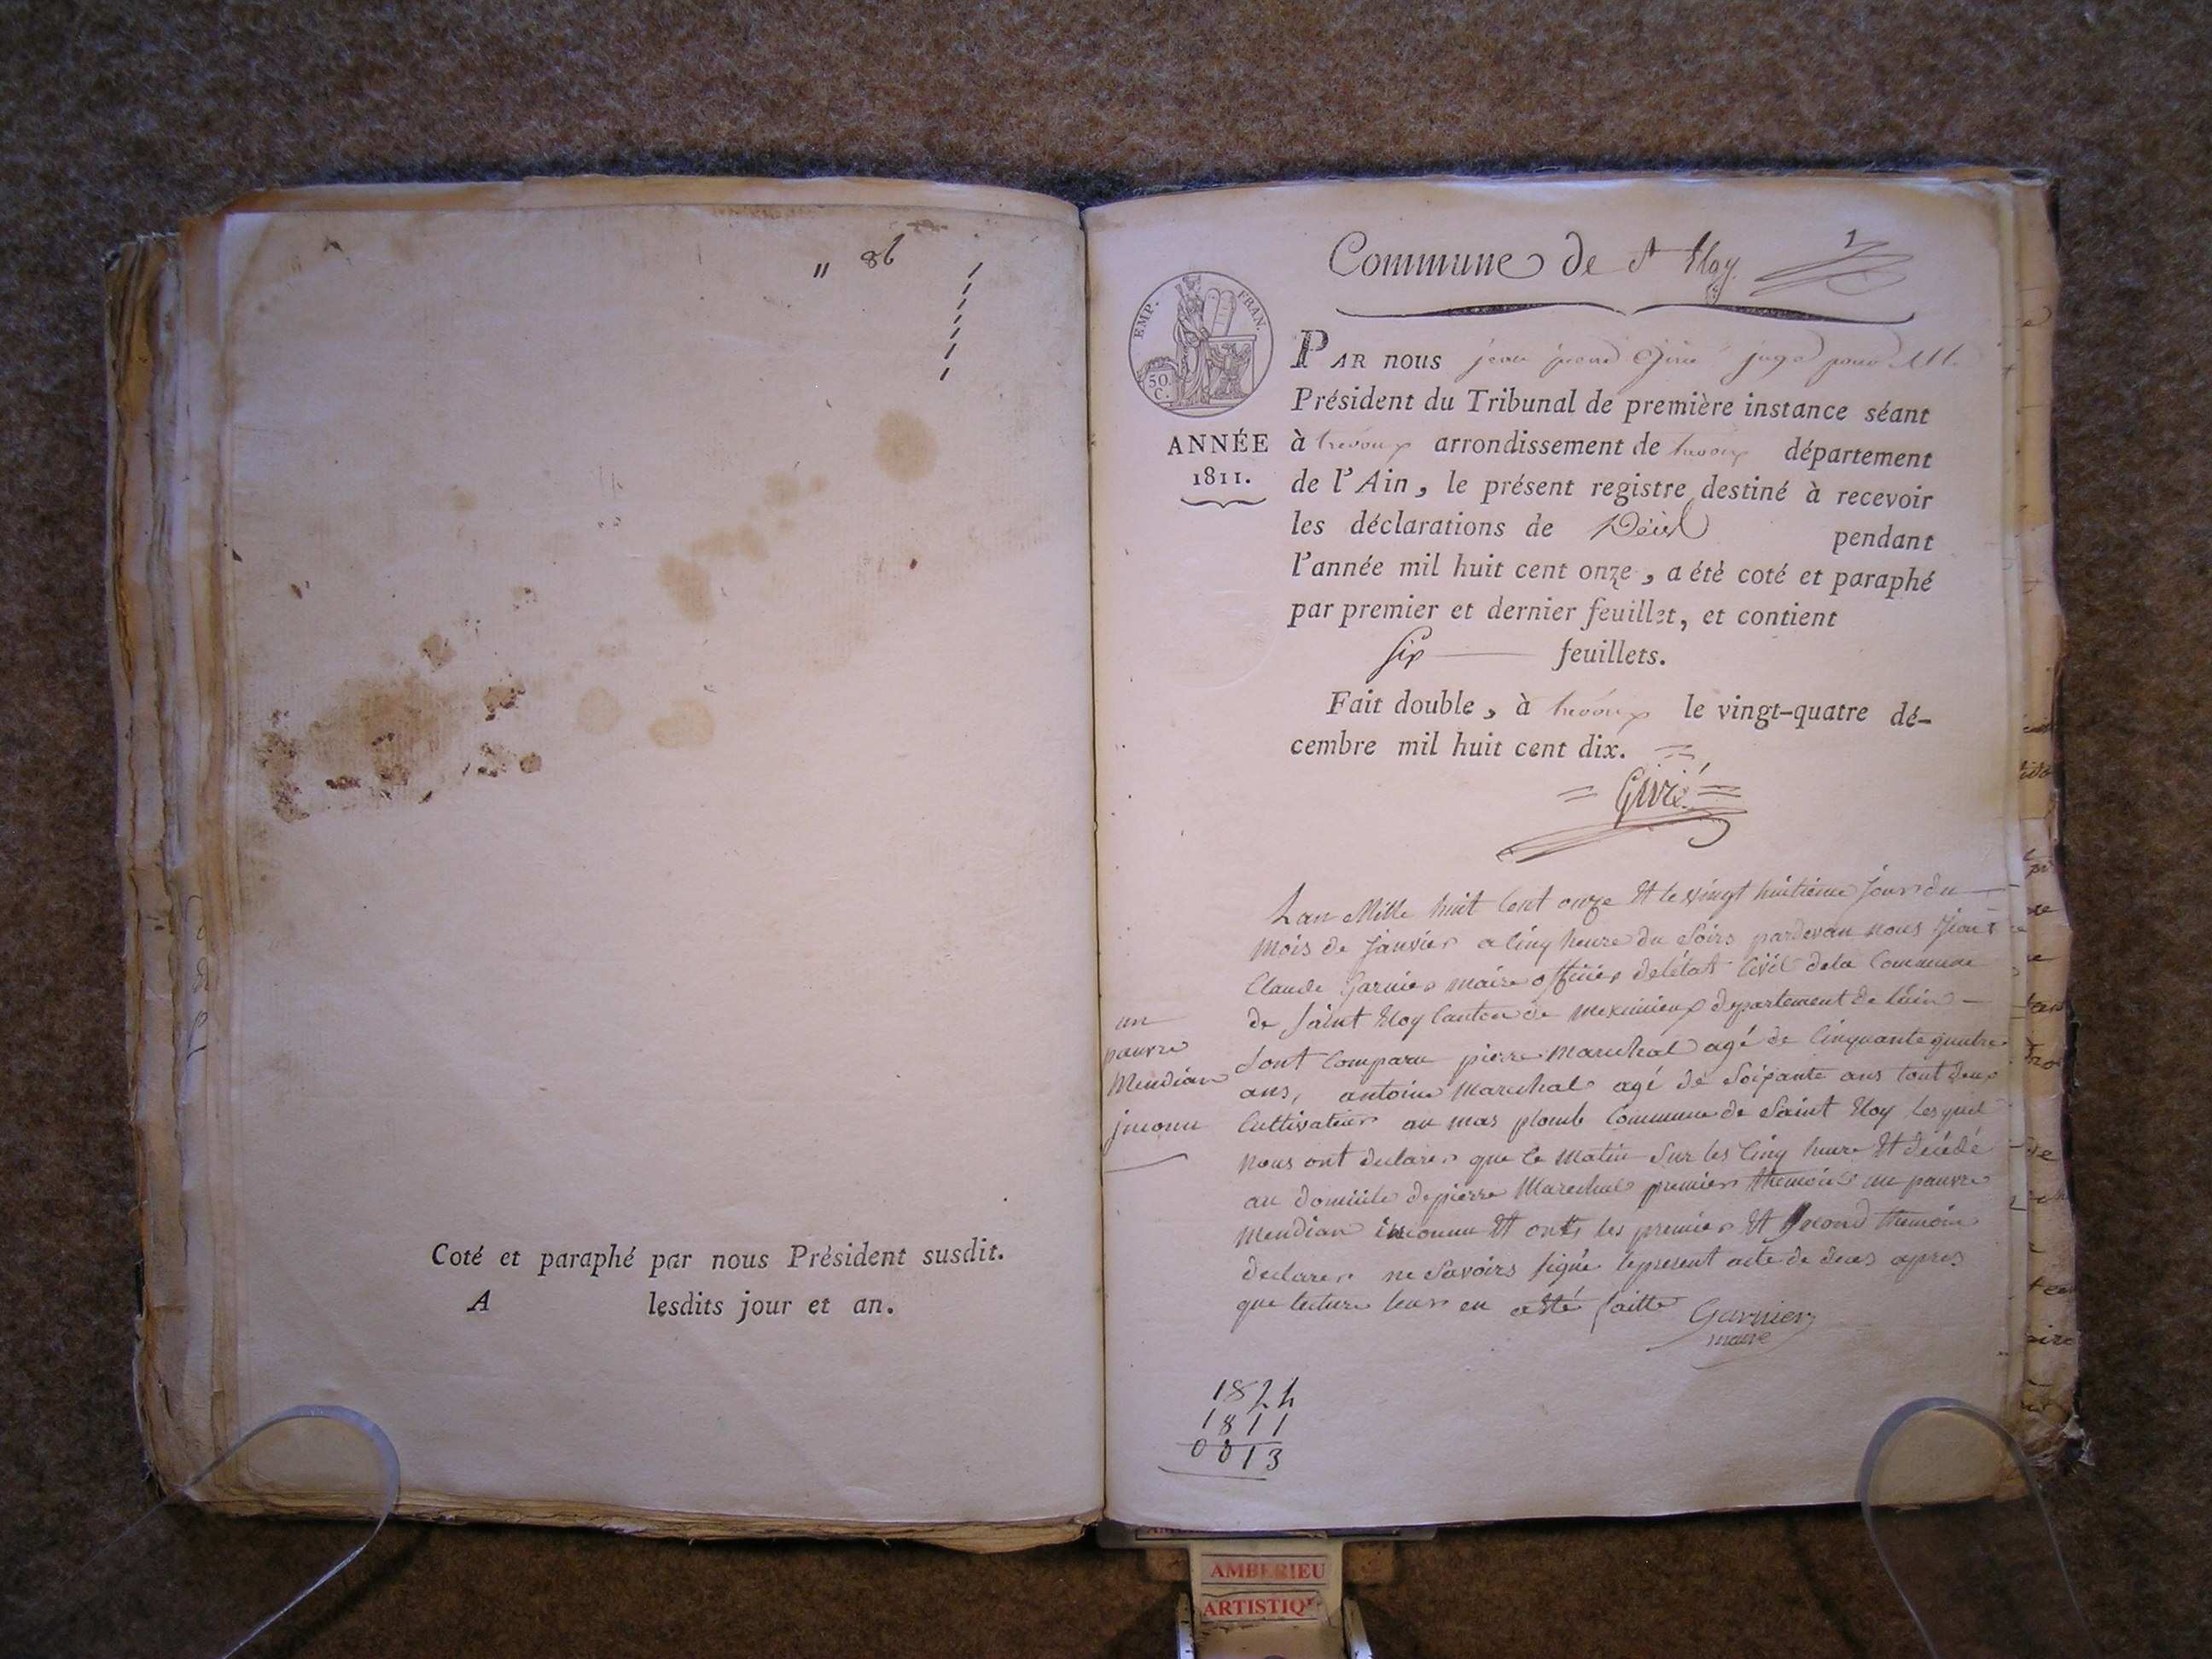 " 86
Coté et paraphé par nous Président susdit.
A lesdits jour et an.
Commune de St Eloy 1
EMP. FRAN.
50. C.
ANNÉE
1811.
PAR nous jean juge pour M.
Président du Tribunal de première instance séant
à trevoux arrondissement de trevoux département
de l'Ain, le présent registre destiné à recevoir
les déclarations de Décès pendant
l'année mil huit cent onze, a été coté et paraphé
par premier et dernier feuillet, et contient
Six feuillets.
Fait double, à trevoux le vingt-quatre dé-
cembre mil huit cent dix.
Givré
un
pauvre
Mendian
jnconnu
Lan Mille huit Cent onze Et le vingt huitieme jour du
mois de Janvier a Cinq heure du Soirs pardevan nous
Claude Garnier maire officier deletat Civil dela Commune
de Saint Eloy Canton de meximieux departement de lain
Sont Comparu pierre Marechal agé de Cinquante quatre
ans, antoine Marechal agé de Soixante ans tout deux
Cultivateur au mas plomb Commune de Saint Eloy Lesquel
nous ont declarer que Ce matin Sur les Cinq heure Et décédé
au domicile depierre Marechal premier themoins un pauvre
mendian inconnu Et onts les premier Et Second themoin
declarer ne Savoirs signé lepresent acte de deces apres
que lecture leur en aété faitte Garnier
maire
1824
1811
0013
AMBERIEU
ARTISTIQ